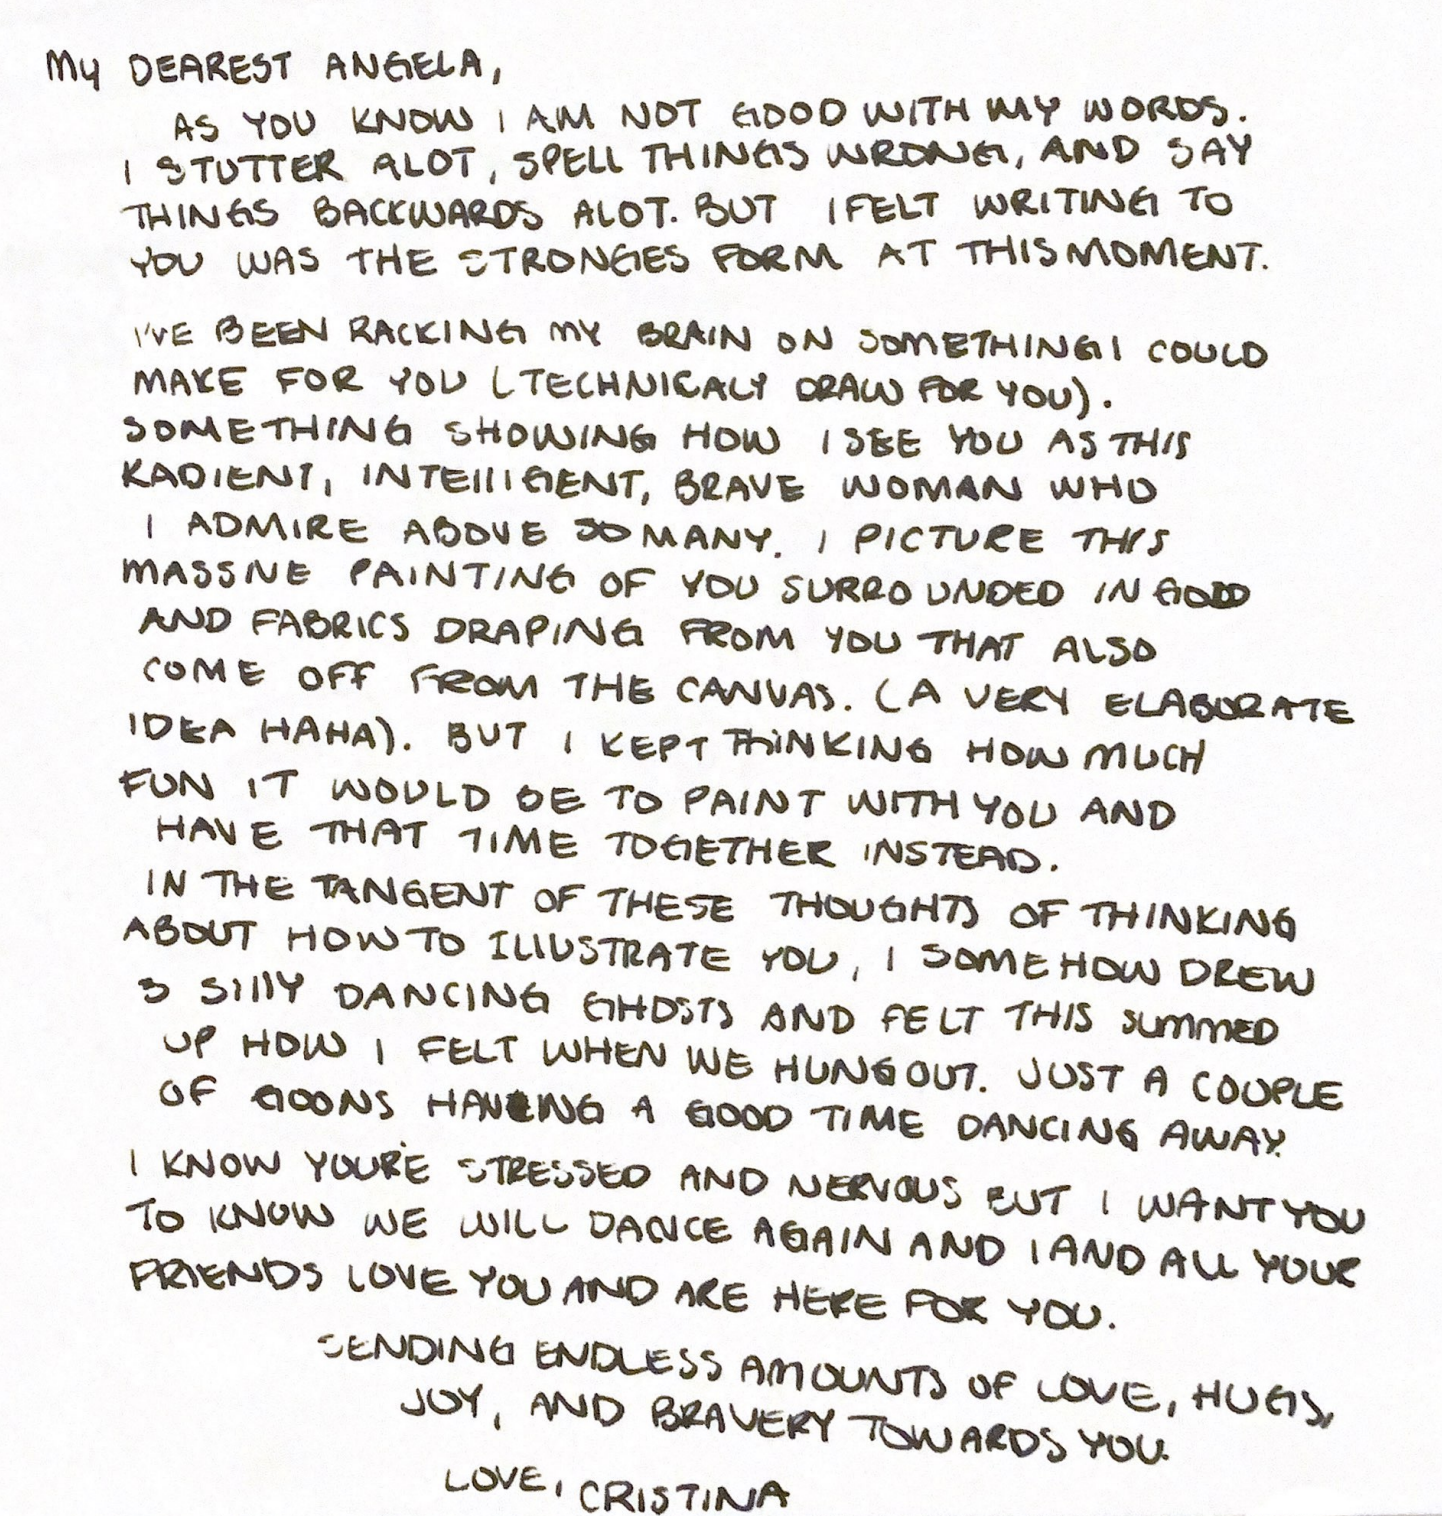 My DEAREST ANGELA,
AS YOU KNOW I AM NOT GOOD WITH MY WORDS.
I STUTTER ALOT, SPELL THINGS WRONG, AND SAY
THINGS BACKWARDS ALOT. BUT I FELT WRITING TO
YOU WAS THE STRONGES FORM AT THIS MOMENT.
I'VE BEEN RACKING MY BRAIN ON SOMETHING I COULD
MAKE FOR YOU (TECHNICALY DRAW FOR YOU).
SOMETHING SHOWING HOW I SEE YOU AS THIS
RADIENT, INTELLIGENT, BRAVE WOMAN WHO
I ADMIRE ABOVE SO MANY. I PICTURE THIS
MASSIVE PAINTING OF YOU SURROUNDED IN GOLD
AND FABRICS DRAPING FROM YOU THAT ALSO
COME OFF FROM THE CANVAS. (A VERY ELABORATE
IDEA HAHA). BUT I KEPT THINKING HOW MUCH
FUN IT WOULD BE TO PAINT WITH YOU AND
HAVE THAT TIME TOGETHER INSTEAD.
IN THE TANGENT OF THESE THOUGHTS OF THINKING
ABOUT HOW TO ILLUSTRATE YOU, I SOMEHOW DREW
3 SILLY DANCING GHOSTS AND FELT THIS SUMMED
UP HOW I FELT WHEN WE HUNG OUT. JUST A COUPLE
OF GOONS HAVING A GOOD TIME DANCING AWAY.
I KNOW YOU'RE STRESSED AND NERVOUS BUT I WANT YOU
TO KNOW WE WILL DANCE AGAIN AND I AND ALL YOUR
FRIENDS LOVE YOU AND ARE HERE FOR YOU.
SENDING ENDLESS AMOUNTS OF LOVE, HUGS,
JOY, AND BRAVERY TOWARDS YOU.
LOVE, CRISTINA